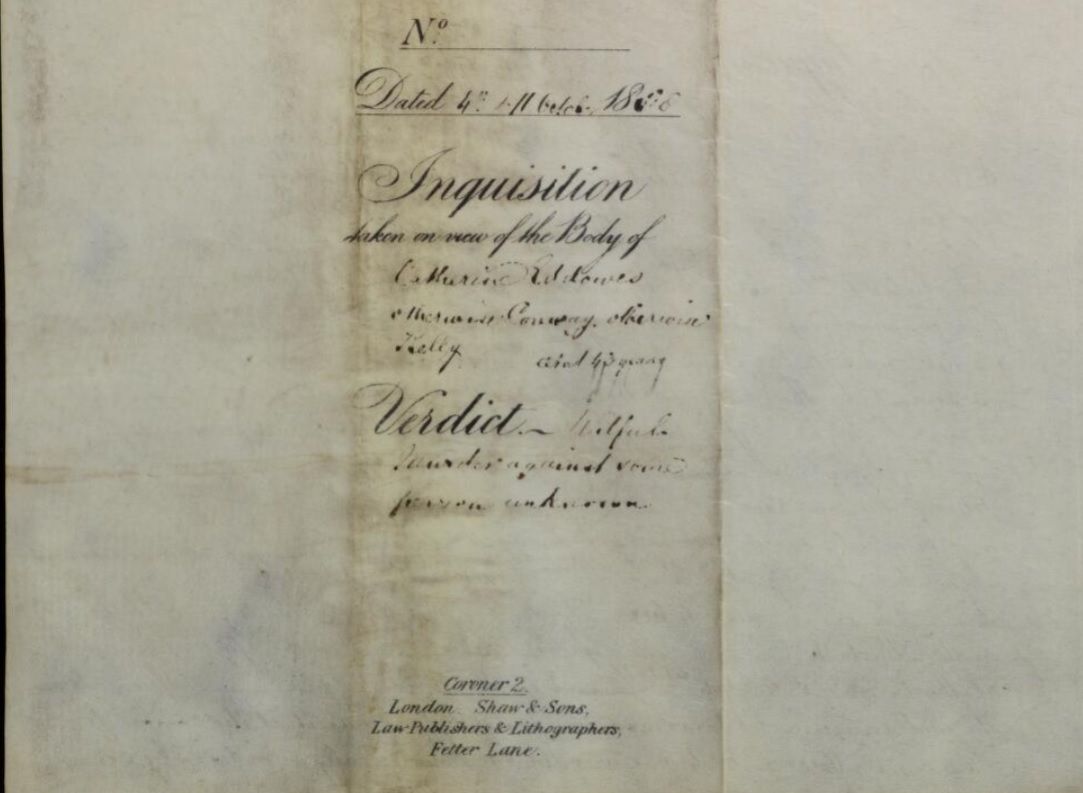 No.
Dated 4th & 11 Octobr 1888
Inquisition
taken on view of the Body of
Catherine Eddowes
otherwise Conway, otherwise
Kelly aged 43 years
Verdict. ~ Wilful
Murder against some
person unknown.
Coroner 2.
London. Shaw & Sons,
Law Publishers & Lithographers,
Fetter Lane.